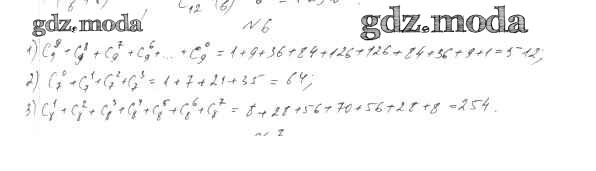 gdz.moda gdz.moda
N6
1) C₉⁹ + C₉⁸ + C₉⁷ + C₉⁶ + ... + C₉⁰ = 1+9+36+84+126+126+84+36+9+1=512;
2) C₇⁰ + C₇¹ + C₇² + C₇³ = 1+7+21+35 = 64;
3) C₈¹ + C₈² + C₈³ + C₈⁴ + C₈⁵ + C₈⁶ + C₈⁷ = 8+28+56+70+56+28+8 = 254.